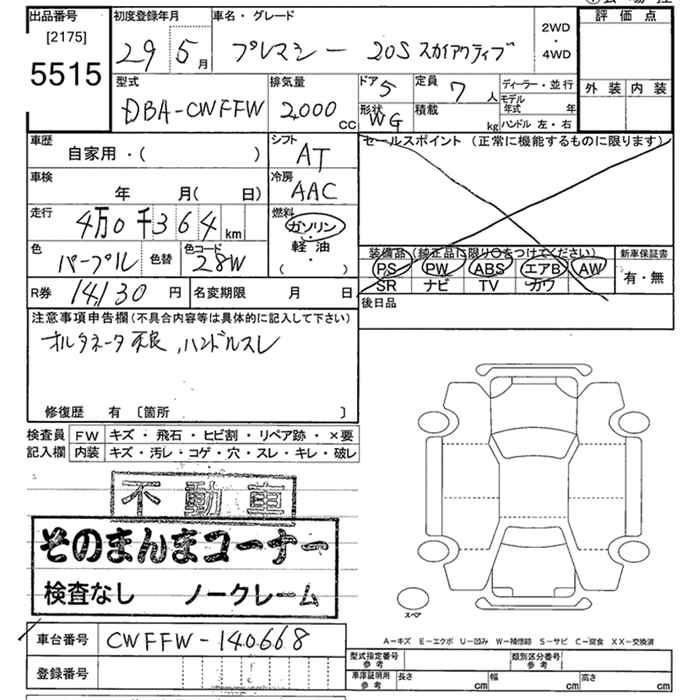 出品番号
[2175]
5515
初度登録年月
29 5月
車名・グレード
プレマシー 20S スカイアクティブ
2WD
・
4WD
評価点
外装 内装
型式
DBA-CWFFW
排気量
2,000 CC
ドア 5
形状 WG
定員 7 人
積載 kg
ディーラー・並行
モデル年式 年
ハンドル 左・右
車歴
自家用・( )
シフト
AT
セールスポイント (正常に機能するものに限ります)
車検
年 月( 日)
冷房
AAC
走行
4万0千364 km
燃料
ガソリン
・
軽油
( ・ )
色
パープル
色替
色コード
28W
装備品 (純正品に限り○をつけてください)
PS PW ABS エアB AW
SR ナビ TV カワ
新車保証書
有・無
R券 14130 円
名変期限 月 日
後日品
注意事項申告欄(不具合内容等は具体的に記入して下さい)
オルタネータ不良, ハンドルスレ
修復歴 有 〔箇所 〕
検査員 FW キズ・飛石・ヒビ割・リペア跡・×要
記入欄 内装 キズ・汚レ・コゲ・穴・スレ・キレ・破レ
不動車
そのまんまコーナー
検査なし ノークレーム
スペア
A−キズ E−エクボ U−凹み W−補修跡 S−サビ C−腐食 XX−交換済
車台番号 CWFFW-140668
登録番号
型式指定番号
参考
類別区分番号
参考
車庫証明用
参考
長さ cm 幅 cm 高さ cm